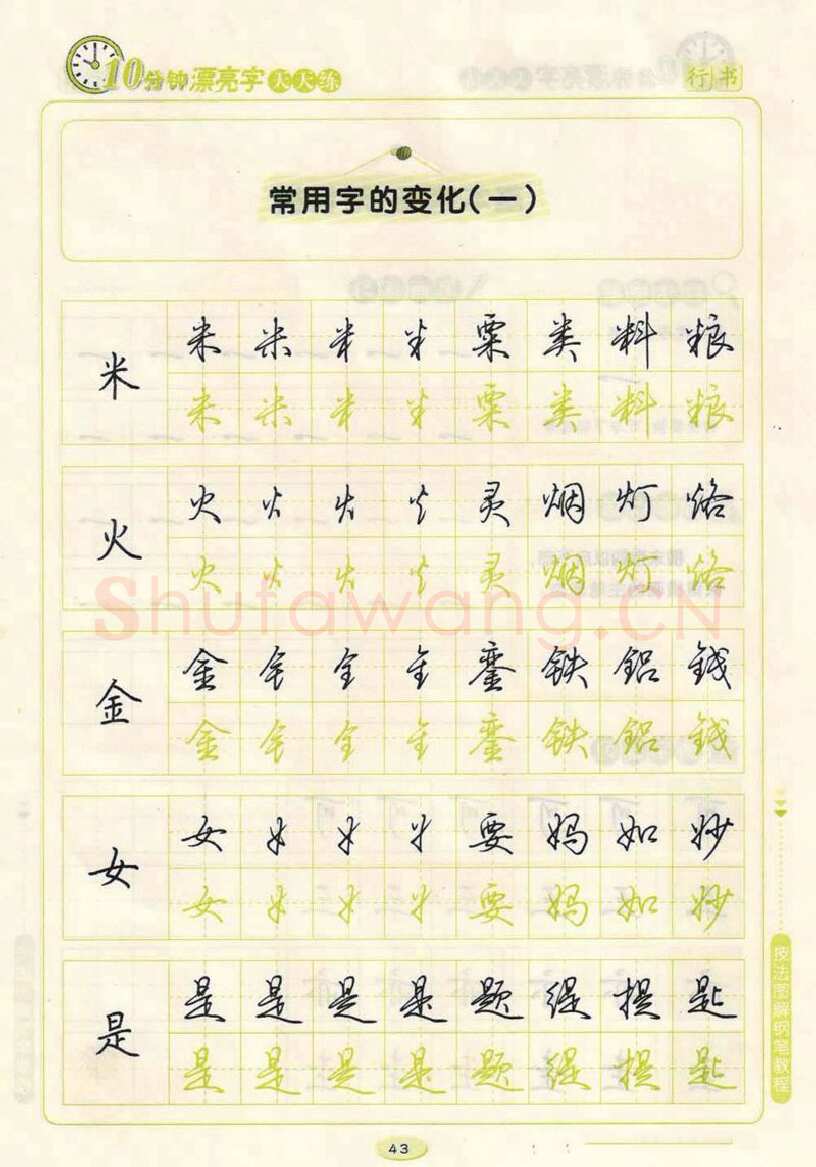 10分钟漂亮字天天练
行书
常用字的变化(一)
米 米 米 米 米 粟 类 料 粮
米 米 米 米 粟 类 料 粮
火 火 火 火 火 灵 烟 灯 烙
火 火 火 火 灵 烟 灯 烙
Shufawang.CN
金 金 金 金 金 銮 铁 铝 钱
金 金 金 金 銮 铁 铝 钱
女 女 女 女 女 要 妈 如 妙
女 女 女 女 要 妈 如 妙
是 是 是 是 是 题 缇 提 匙
是 是 是 是 题 缇 提 匙
技法图解钢笔教程
43